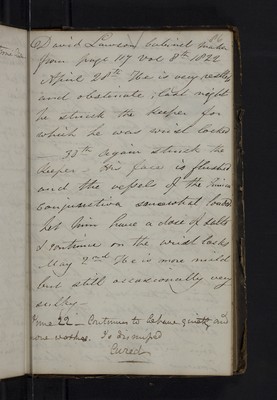 David Lawson Cabinet maker
from page 107 Vol 8th 1822
April 28th He is very restless
and obstinate; last night
he struck the keeper for
which he was wrist locked
_ 30th again struck the
keeper - His face is flushed
and the vessels of the
conjunctiva somewhat loaded
let him have a dose of salts
& continue on the wrist locks
May 2nd He is more mild
but still occasionally very
sulky -
June 22 - Continues to behave quietly and
washes. Is dismissed
Cured